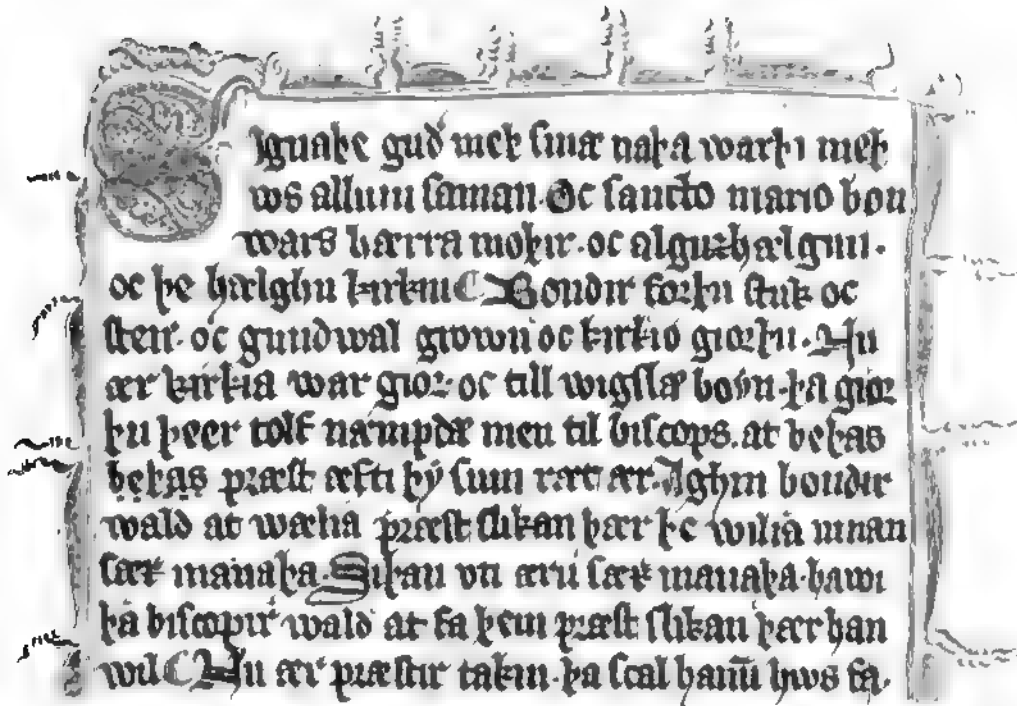 Signaþe guð meþ sinæ naþa warþi meþ
ws allum saman. Oc santto mario bon
wars hærra moþir. oc alguzhælgmi.
oc þe hælghu kirkiu Bondir forþu stuk oc
sten. oc grundwal growin oc kirkio giorþu. Nu
ær kirkia war gior. oc till wigslæ boþin. þa gior
þu þeer tolf næmpdæ men til biscops. at beþas
beþas præst æfti þy sum ræt ær. Ighin bondir
wald at wælia præst slikan þær þe wilia innan
sæx manaþa. Siþan vti æru sæx manaþa. hawi
þa biscopir wald at fa þem præst slikan þær han
wil Nu ær præstir takin. þa scal hanum hws fa.